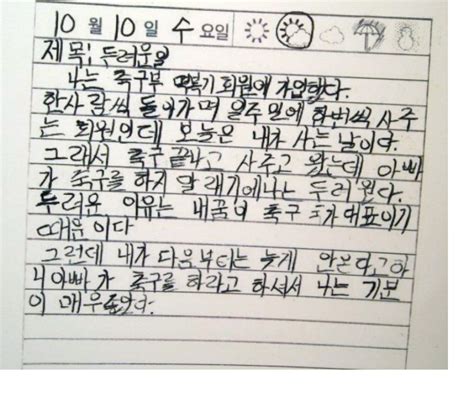 10 월 10 일 수 요일
제목: 두려운일
나는 축구부 떡볶기 회원에 가입했다.
한사람씩 돌아가며 일주일에 한번씩 사주
는 회원인데 오늘은 내가 사는 날이다.
그래서 축구 끝나고 사주고 왔는데 아빠
가 축구를 하지 말래기에 나는 두려웠다.
두려운 이유는 내꿈이 축구 대표이기
때문이다
그런데 내가 다음부터는 늦게 안온다고하
니 아빠가 축구를 하라고 하셔서 나는 기분
이 매우 좋았다.